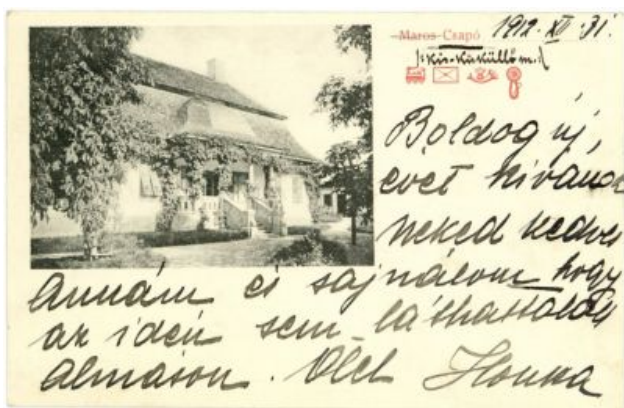 Maros-Csapó 1912. XII. 31.
/:Kis-Küküllő m.:/
Boldog új,
évet kivánok
neked kedves
Annám és sajnálom hogy
az idén sem láthattalak
Almáson. Ölel Ilonka